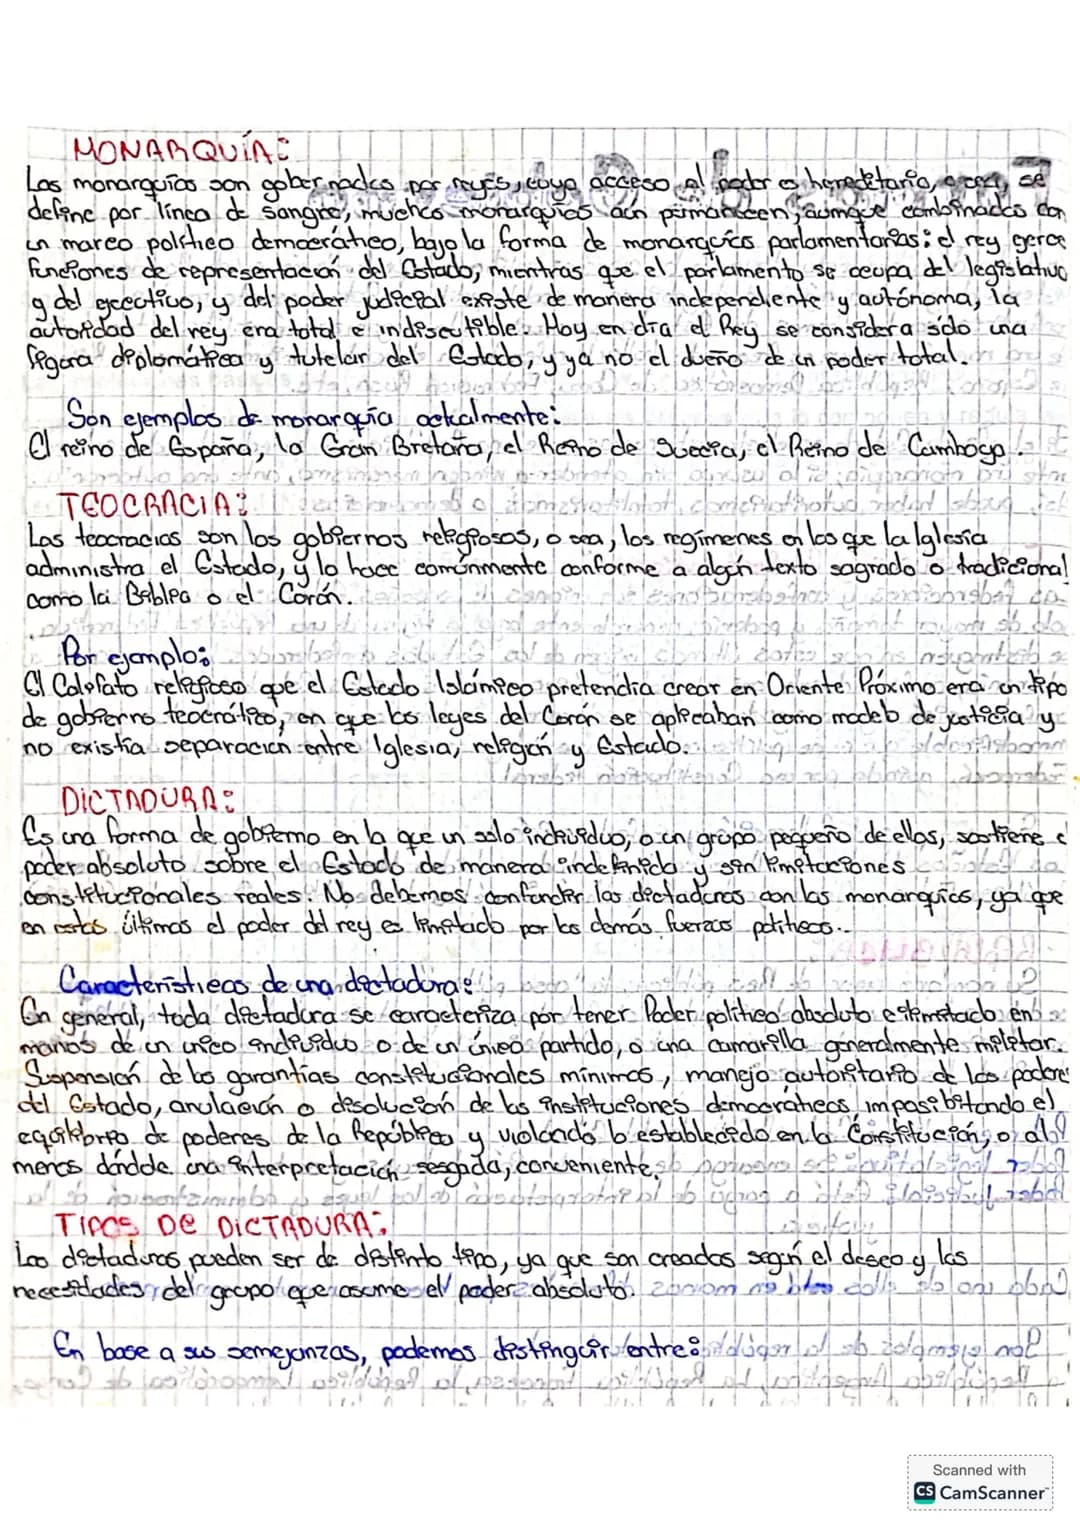 MONARQUÍA:
Las monarquías son gobernadas por reyes, cuyo acceso al poder es hereditario, o sea, se
define por línea de sangre, muchas monarquías aún permanecen, aumque combinadas con
un marco político democrático, bajo la forma de monarquías parlamentarias: el rey gerce
funciones de representación del Estado, mientras que el parlamento se ocupa del legislativo
y del ejecutivo, y del poder judicial existe de manera independiente y autónoma, la
autoridad del rey era total e indiscutible. Hoy en día el Rey se considera sólo una
figura diplomática y tutelar del Estado, y ya no el dueño de un poder total.
Son ejemplos de monarquía actualmente:
El reino de España, la Gran Bretaña, el Reino de Suecia, el Reino de Camboya.
TEOCRACIA:
Las teocracias son los gobiernos religiosos, o sea, los regímenes en los que la Iglesia
administra el Estado, y lo hace comúnmente conforme a algún texto sagrado o tradicional
como la Biblia o el Corán.
Por ejemplo:
El Califato religioso que el Estado Islámico pretendia crear en Oriente Próximo era un tipo
de gobierno teocrático, en que las leyes del Corán se aplicaban como modelo de justicia y
no existía separación entre Iglesia, religión y Estado.
DICTADURA:
Es una forma de gobierno en la que un solo individuo, o un grupo pequeño de ellos, sostiene e
poder absoluto sobre el Estado de manera indefinida y sin limitaciones
constitucionales reales. No debemos confundir las dictaduras con las monarquías, ya que
en estas últimas el poder del rey es limitado por las demás fuerzas políticas.
Características de una dictadura:
En general, toda dictadura se caracteriza por tener Poder político absoluto e ilimitado en
manos de un unico individuo o de un único partido, o una camarilla generalmente militar.
Suspensión de las garantías constitucionales mínimas, manejo autoritario de los podere
del Estado, anulación o disolución de las instituciones democráticas imposibitando el
equilibrio de poderes de la República y violando lo establecido en la Constitución, o al
menos dándole una interpretación sesgada, conveniente.
TIPOS De DICTADURA:
Las dictaduras pueden ser de distinto tipo, ya que son creadas según el deseo y las
necesidades del grupo que asume el poder absoluto.
En base a sus semejanzas, podemos distinguir entre:
Scanned with
CS CamScanner